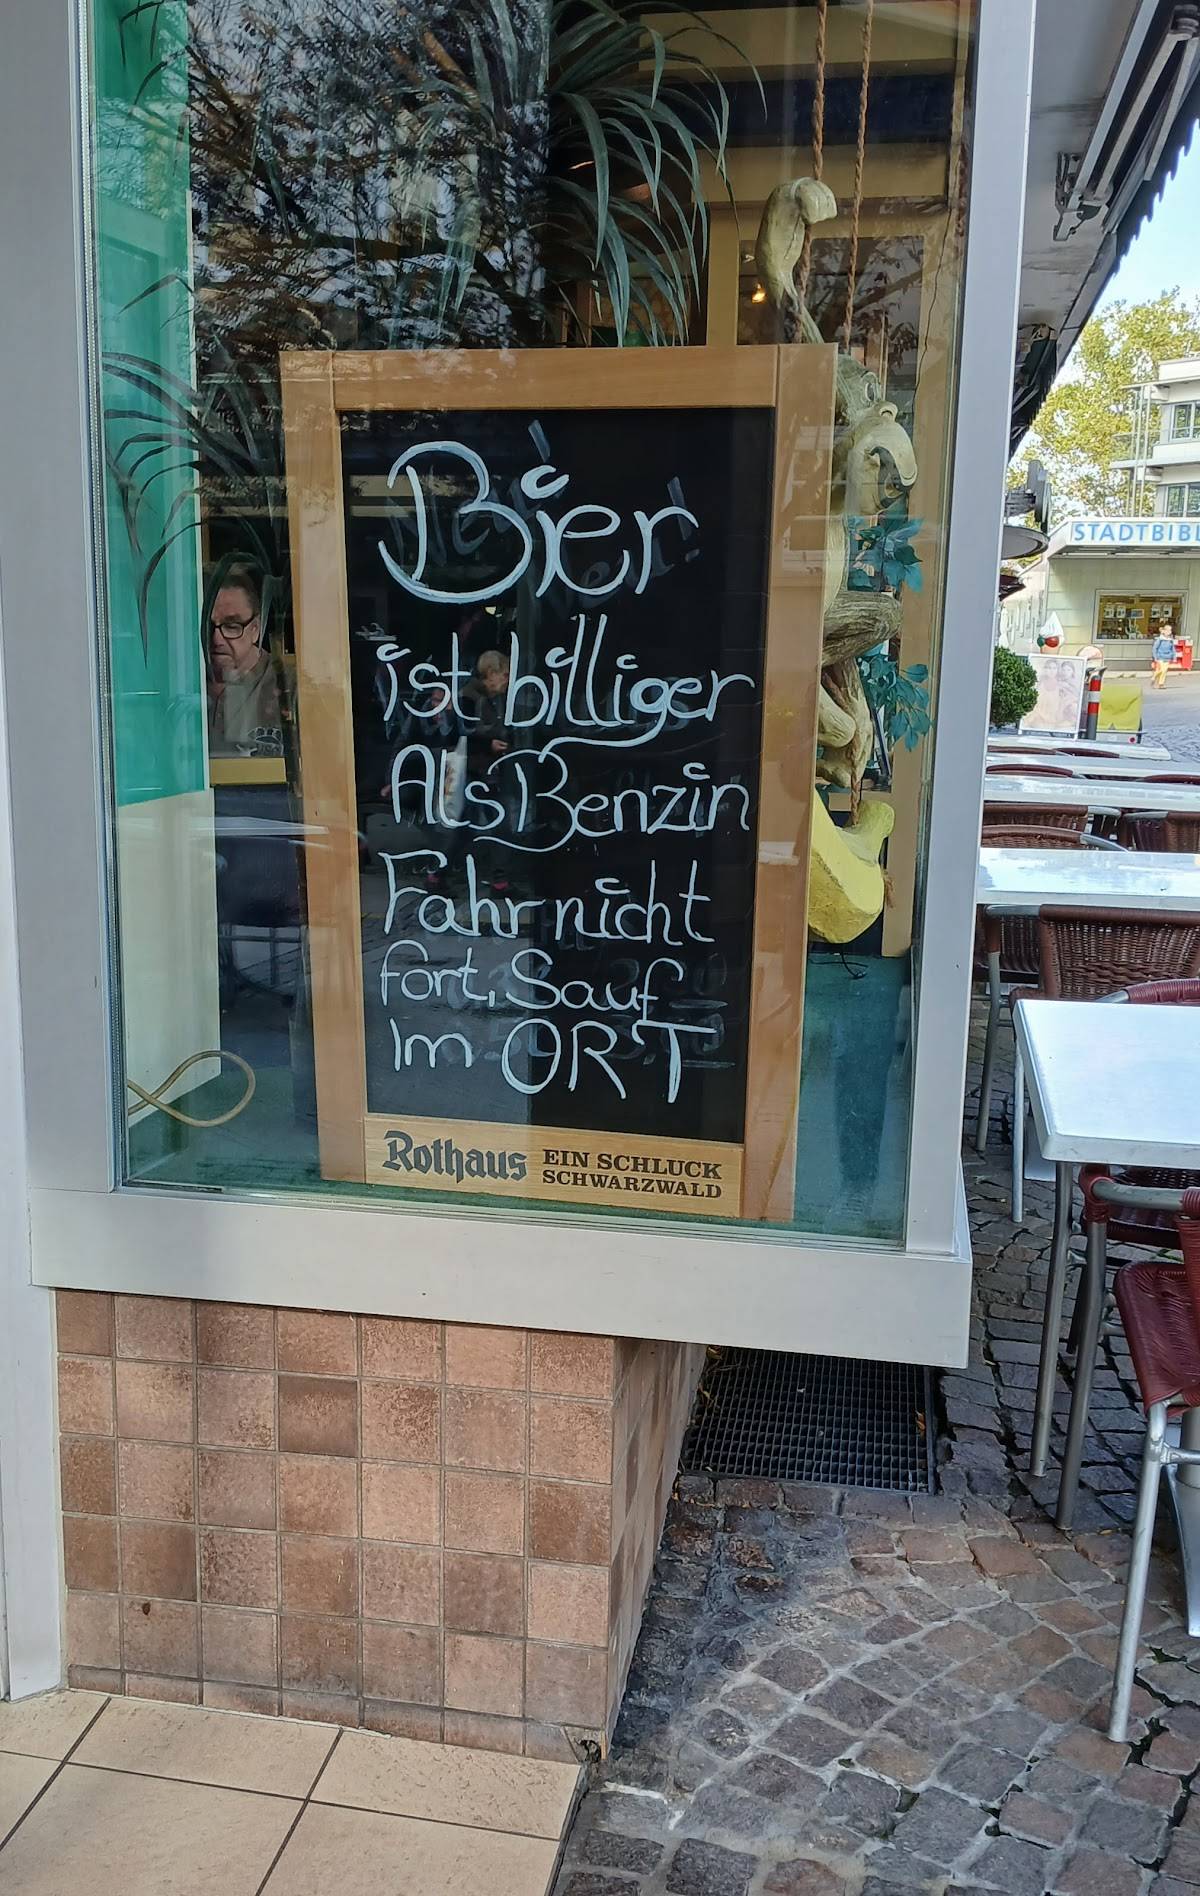 Bier
ist billiger
Als Benzin
Fahr nicht
fort, Sauf
Im ORT
Rothaus EIN SCHLUCK
SCHWARZWALD
STADTBIBL